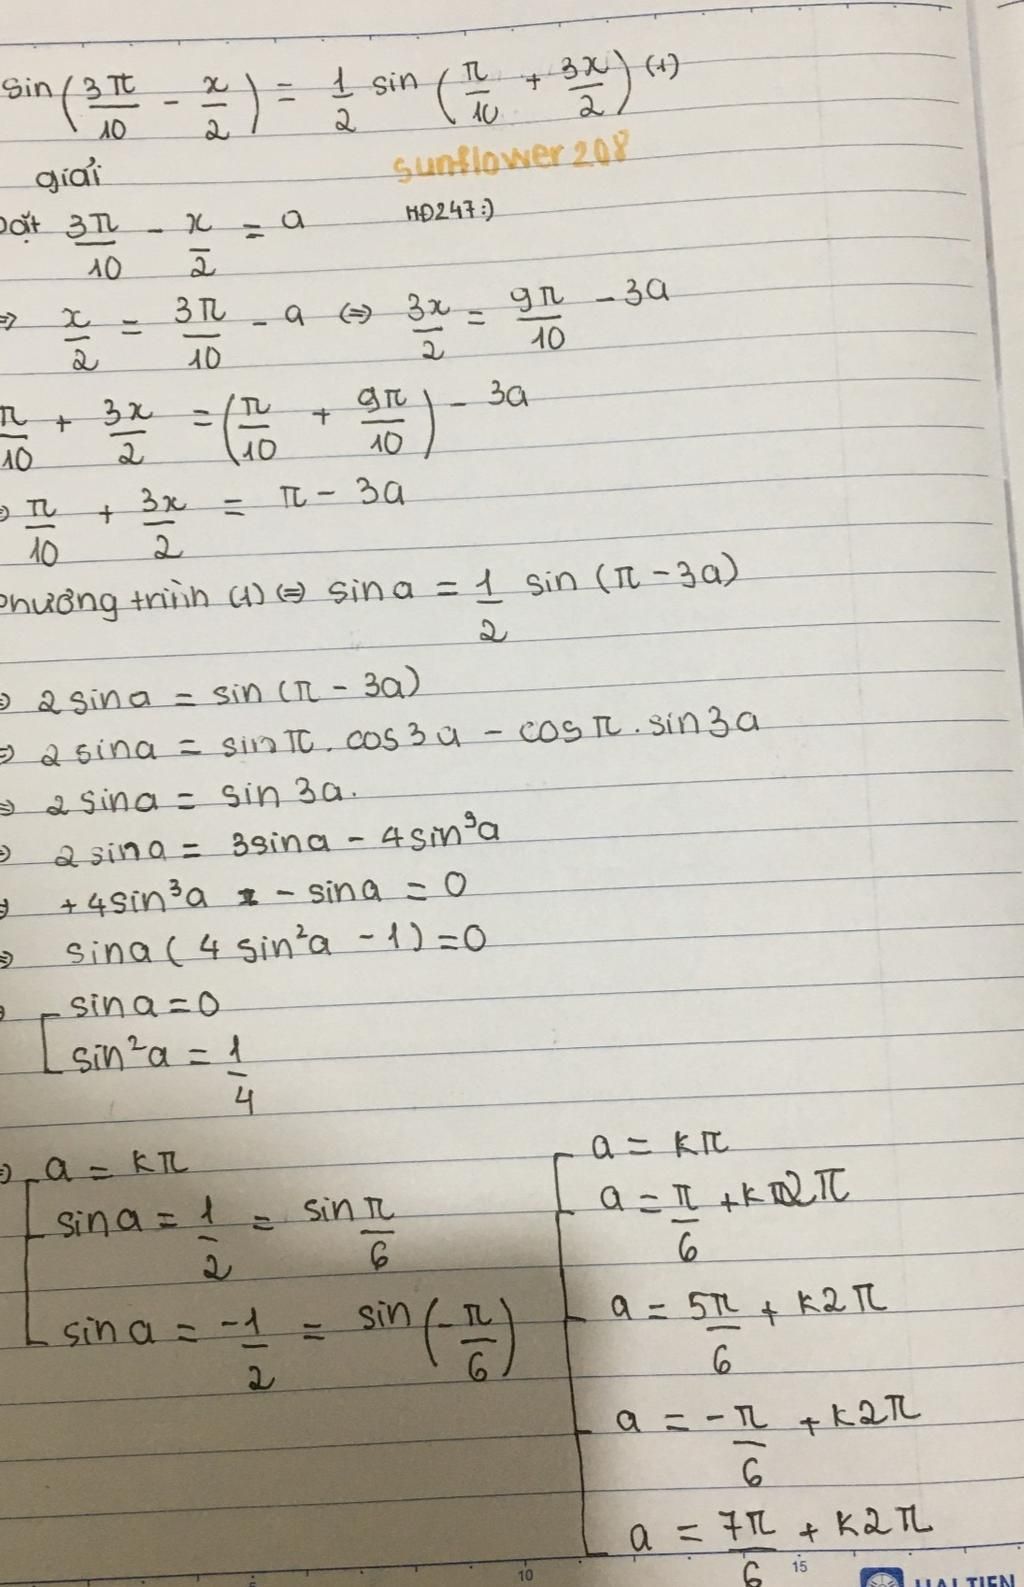 sin(3π/10 - x/2) = 1/2 sin(π/10 + 3x/2) (1)
giải
sunflower208
Đặt 3π/10 - x/2 = a
HĐ247:)
⇒ x/2 = 3π/10 - a ⇔ 3x/2 = 9π/10 - 3a
π/10 + 3x/2 = (π/10 + 9π/10) - 3a
⇒ π/10 + 3x/2 = π - 3a
Phương trình (1) ⇔ sin a = 1/2 sin (π - 3a)
⇔ 2 sin a = sin (π - 3a)
⇔ 2 sin a = sin π . cos 3a - cos π . sin 3a
⇔ 2 sin a = sin 3a.
⇔ 2 sin a = 3 sin a - 4 sin³a
⇔ + 4 sin³a - sin a = 0
⇔ sin a ( 4 sin²a - 1) = 0
⇔ [ sin a = 0
sin²a = 1/4
⇔ [ a = kπ
sin a = 1/2 = sin π/6
sin a = -1/2 = sin (-π/6)
[ a = kπ
a = π/6 + k2π
a = 5π/6 + k2π
a = -π/6 + k2π
a = 7π/6 + k2π
10
15
HẢI TIẾN